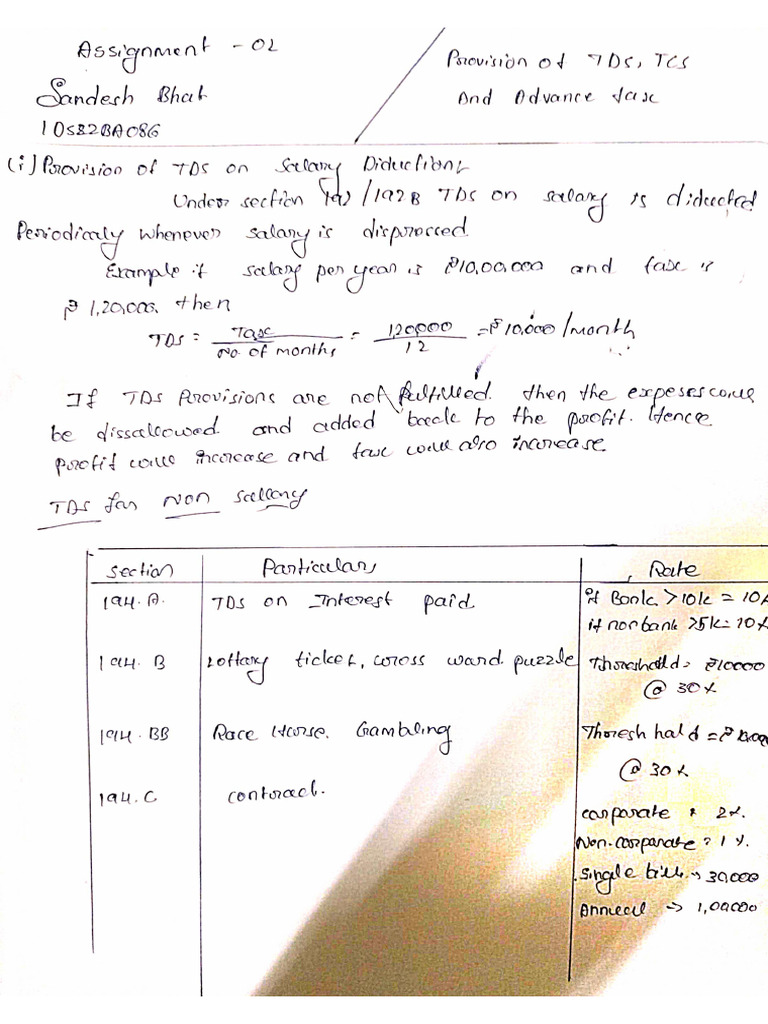 Assignment - 02
Sandesh Bhat
10SB2BA086
Provision of TDS, TCS
And Advance tax
(i) Provision of TDS on salary Diductions
Under section 192/192B TDS on salary is diducted
Periodicaly whenever salary is disprossed
Example if salary per year is ₹10,00,000 and tax is
₹ 1,20,000. then
TDS = Tax / No. of months = 120000 / 12 = ₹10,000/month
If TDS Provisions are not fulfilled. then the expeses will
be dissallowed and added back to the profit. Hence
profit will increase and tax will also increase
TDS for Non Sallary
Section Particulars Rate
194.A. TDS on Interest paid if Bank >10k = 10%
if nonbank >5k = 10%
194. B Lottary ticket, cross word puzzle Threshold = ₹10000
@ 30%
194.BB Race Horse. Gambling Thresh hald = ₹
@ 30%
194.C contract.
corporate = 2%.
Non-corporate = 1%.
single bill → 30,000
Annual → 1,00,000